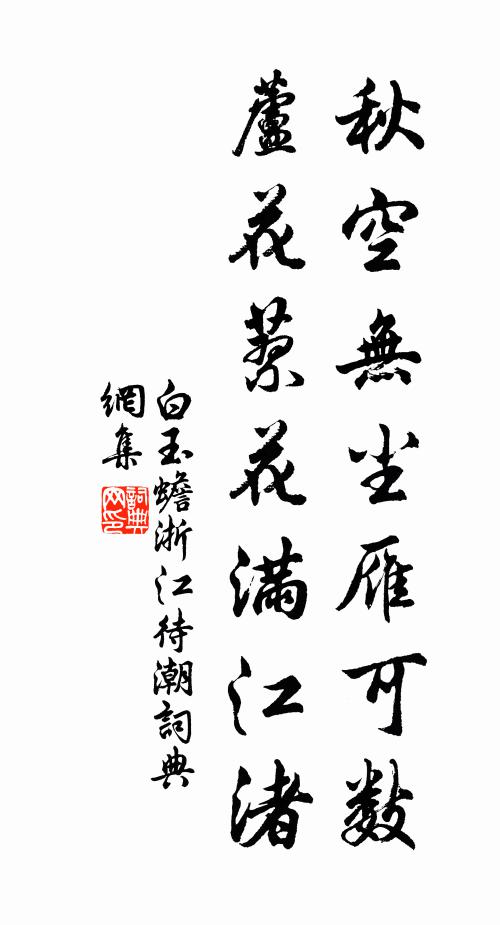 秋空無尘雁可数
蘆花蓼花滿江渚
白玉蟾浙江待潮詞典
網集
詞典
网印